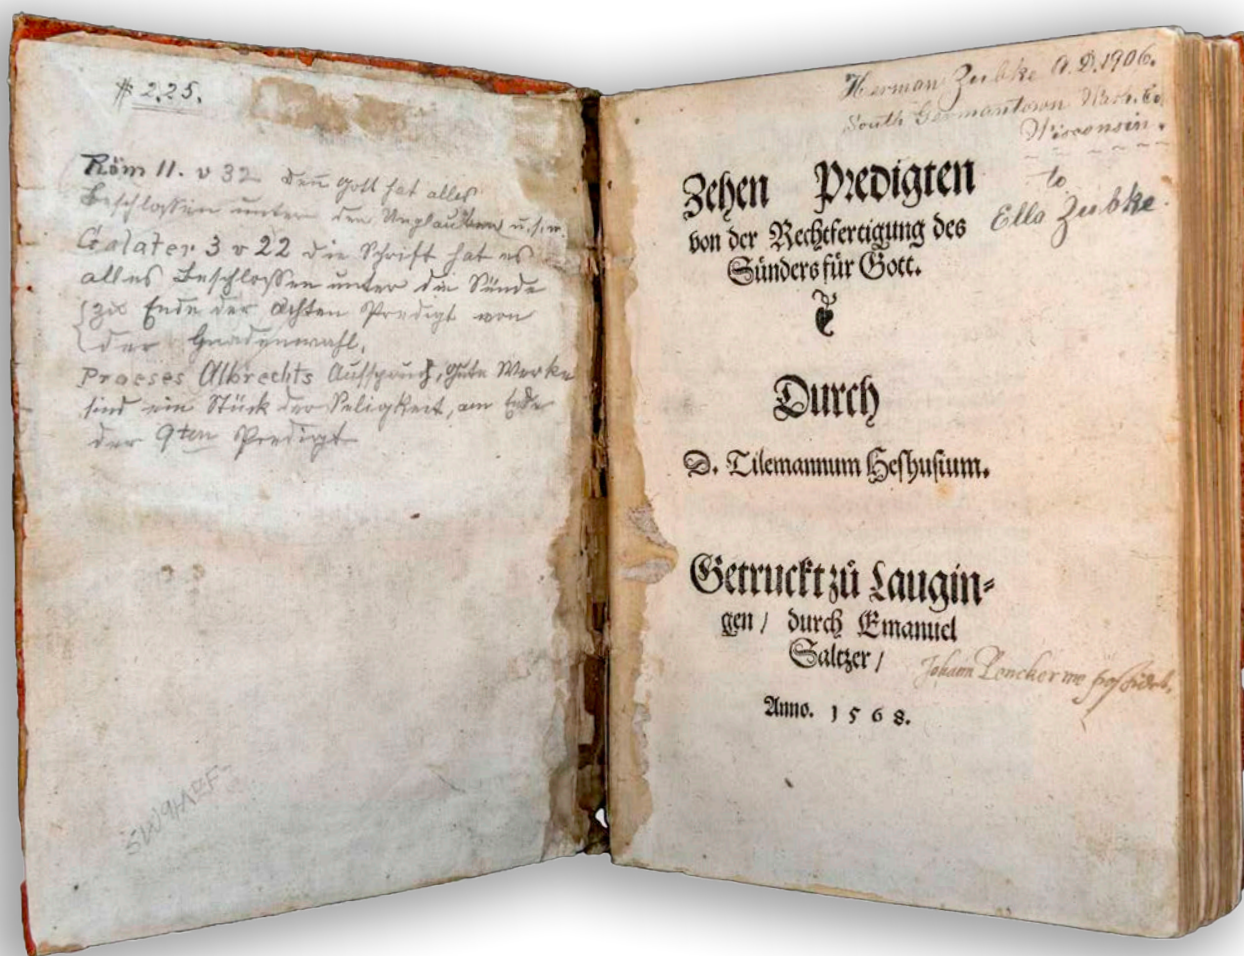 $ 2.25.
Röm 11. v 32 Denn Gott hat alles
Beschlossen unter den Unglauben u.s.w.
Galater 3 v 22 die Schrift hat es
alles Beschlossen unter die Sünde
zu Ende der Achten Predigt von
der Gnadenwahl.
Praeses Albrechts Ausspruch, gute Werke
sind ein Stück der Seligkeit, am Ende
der 9ten Predigt
Herman Zubke A.D. 1906.
South Germantown Wash. Co.
Wisconsin.
to
Ella Zubke.
Zehen Predigten
von der Rechtfertigung des
Sünders für Gott.
Durch
D. Tilemannum Heshusium.
Getruckt zů Laugin-
gen / durch Emanuel
Saltzer /
Anno. 1568.
Johann me possidet.